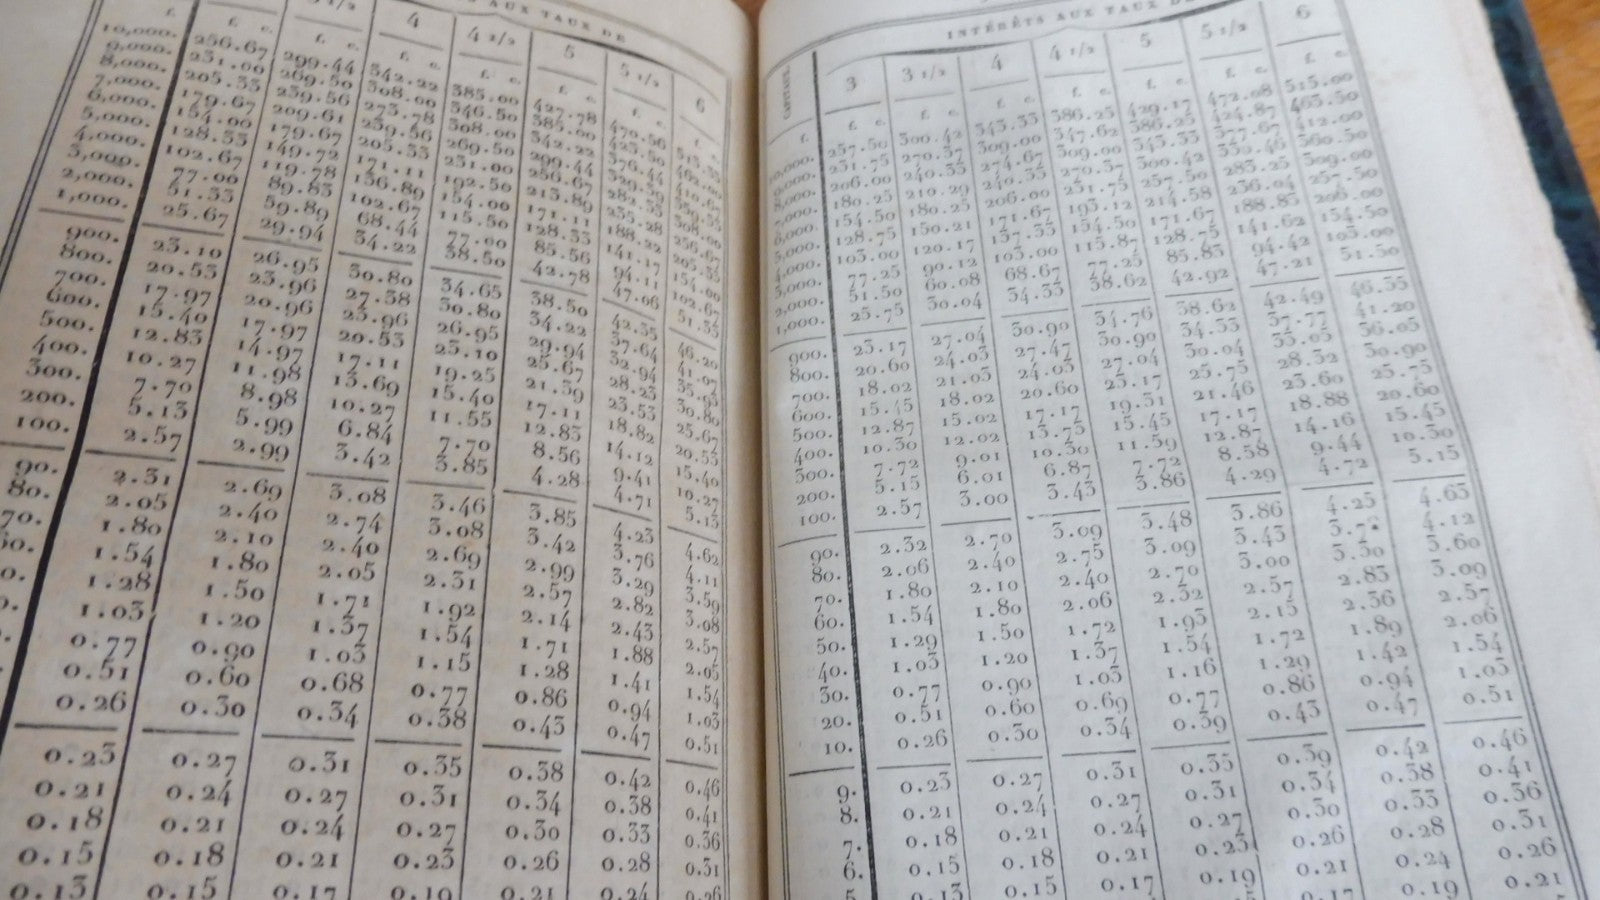 S AUX TAUX DE
3 1/2 4 4 1/2 5 5 1/2 6
f. f. c. f. c. f. c. f. c. f. c. f. c.
10,000. 256.67 299.44 342.22 385.00 427.78 470.56 513.33
9,000. 231.00 269.50 308.00 346.50 385.00 423.50 462.00
8,000. 205.33 239.56 273.78 308.00 342.22 376.44 410.67
7,000. 179.67 209.61 239.56 269.50 299.44 329.39 359.33
6,000. 154.00 179.67 205.33 231.00 256.67 282.33 308.00
5,000. 128.33 149.72 171.11 192.50 213.89 235.28 256.67
4,000. 102.67 119.78 136.89 154.00 171.11 188.22 205.33
3,000. 77.00 89.83 102.67 115.50 128.33 141.17 154.00
2,000. 51.33 59.89 68.44 77.00 85.56 94.11 102.67
1,000. 25.67 29.94 34.22 38.50 42.78 47.06 51.33
900. 23.10 26.95 30.80 34.65 38.50 42.35 46.20
800. 20.53 23.96 27.38 30.80 34.22 37.64 41.07
700. 17.97 20.96 23.96 26.95 29.94 32.94 35.93
600. 15.40 17.97 20.53 23.10 25.67 28.23 30.80
500. 12.83 14.97 17.11 19.25 21.39 23.53 25.67
400. 10.27 11.98 13.69 15.40 17.11 18.82 20.53
300. 7.70 8.98 10.27 11.55 12.83 14.12 15.40
200. 5.13 5.99 6.84 7.70 8.56 9.41 10.27
100. 2.57 2.99 3.42 3.85 4.28 4.71 5.13
90. 2.31 2.69 3.08 3.46 3.85 4.23 4.62
80. 2.05 2.40 2.74 3.08 3.42 3.76 4.11
70. 1.80 2.10 2.40 2.69 2.99 3.29 3.59
60. 1.54 1.80 2.05 2.31 2.57 2.82 3.08
0. 1.28 1.50 1.71 1.92 2.14 2.43 2.57
0. 1.03 1.20 1.37 1.54 1.71 1.88 2.05
0.77 0.90 1.03 1.15 1.28 1.41 1.54
0.51 0.60 0.68 0.77 0.86 0.94 1.03
0.26 0.30 0.34 0.38 0.43 0.47 0.51
0.23 0.27 0.31 0.35 0.38 0.42 0.46
0.21 0.24 0.27 0.31 0.34 0.38 0.41
0.18 0.21 0.24 0.27 0.30 0.33 0.36
0.15 0.18 0.21 0.23 0.26 0.28 0.31
0.13 0.15 0.17 0.19 0.21 0.24 0.26
INTÉRÊTS AUX TAUX DE
CAPITAUX. 3 3 1/2 4 4 1/2 5 5 1/2 6
f. f. c. f. c. f. c. f. c. f. c. f. c. f. c.
10,000. 257.50 300.42 343.33 386.25 429.17 472.08 515.00
9,000. 231.75 270.37 309.00 347.62 386.25 424.87 463.50
8,000. 206.00 240.33 274.67 309.00 343.33 377.67 412.00
7,000. 180.25 210.29 240.33 270.37 300.42 330.46 360.50
6,000. 154.50 180.25 206.00 231.75 257.50 283.25 309.00
5,000. 128.75 150.21 171.67 193.12 214.58 236.04 257.50
4,000. 103.00 120.17 137.33 154.50 171.67 188.83 206.00
3,000. 77.25 90.12 103.00 115.87 128.75 141.62 154.50
2,000. 51.50 60.08 68.67 77.25 85.83 94.42 103.00
1,000. 25.75 30.04 34.33 38.62 42.92 47.21 51.50
900. 23.17 27.04 30.90 34.76 38.62 42.49 46.35
800. 20.60 24.03 27.47 30.90 34.33 37.77 41.20
700. 18.02 21.03 24.03 27.04 30.04 33.05 36.05
600. 15.45 18.02 20.60 23.17 25.75 28.32 30.90
500. 12.87 15.02 17.17 19.31 21.46 23.60 25.75
400. 10.30 12.02 13.73 15.45 17.17 18.88 20.60
300. 7.72 9.01 10.30 11.59 12.87 14.16 15.45
200. 5.15 6.01 6.87 7.72 8.58 9.44 10.30
100. 2.57 3.00 3.43 3.86 4.29 4.72 5.15
90. 2.32 2.70 3.09 3.48 3.86 4.25 4.63
80. 2.06 2.40 2.75 3.09 3.43 3.77 4.12
70. 1.80 2.10 2.40 2.70 3.00 3.30 3.60
60. 1.54 1.80 2.06 2.32 2.57 2.83 3.09
50. 1.29 1.50 1.72 1.93 2.15 2.36 2.57
40. 1.03 1.20 1.37 1.54 1.72 1.89 2.06
30. 0.77 0.90 1.03 1.16 1.29 1.42 1.54
20. 0.51 0.60 0.69 0.77 0.86 0.94 1.03
10. 0.26 0.30 0.34 0.39 0.43 0.47 0.51
9. 0.23 0.27 0.31 0.35 0.39 0.42 0.46
8. 0.21 0.24 0.27 0.31 0.34 0.38 0.41
7. 0.18 0.21 0.24 0.27 0.30 0.33 0.36
6. 0.15 0.18 0.21 0.23 0.26 0.28 0.31
5. 0.13 0.15 0.17 0.19 0.21 0.24 0.26
0.17 0.19 0.21